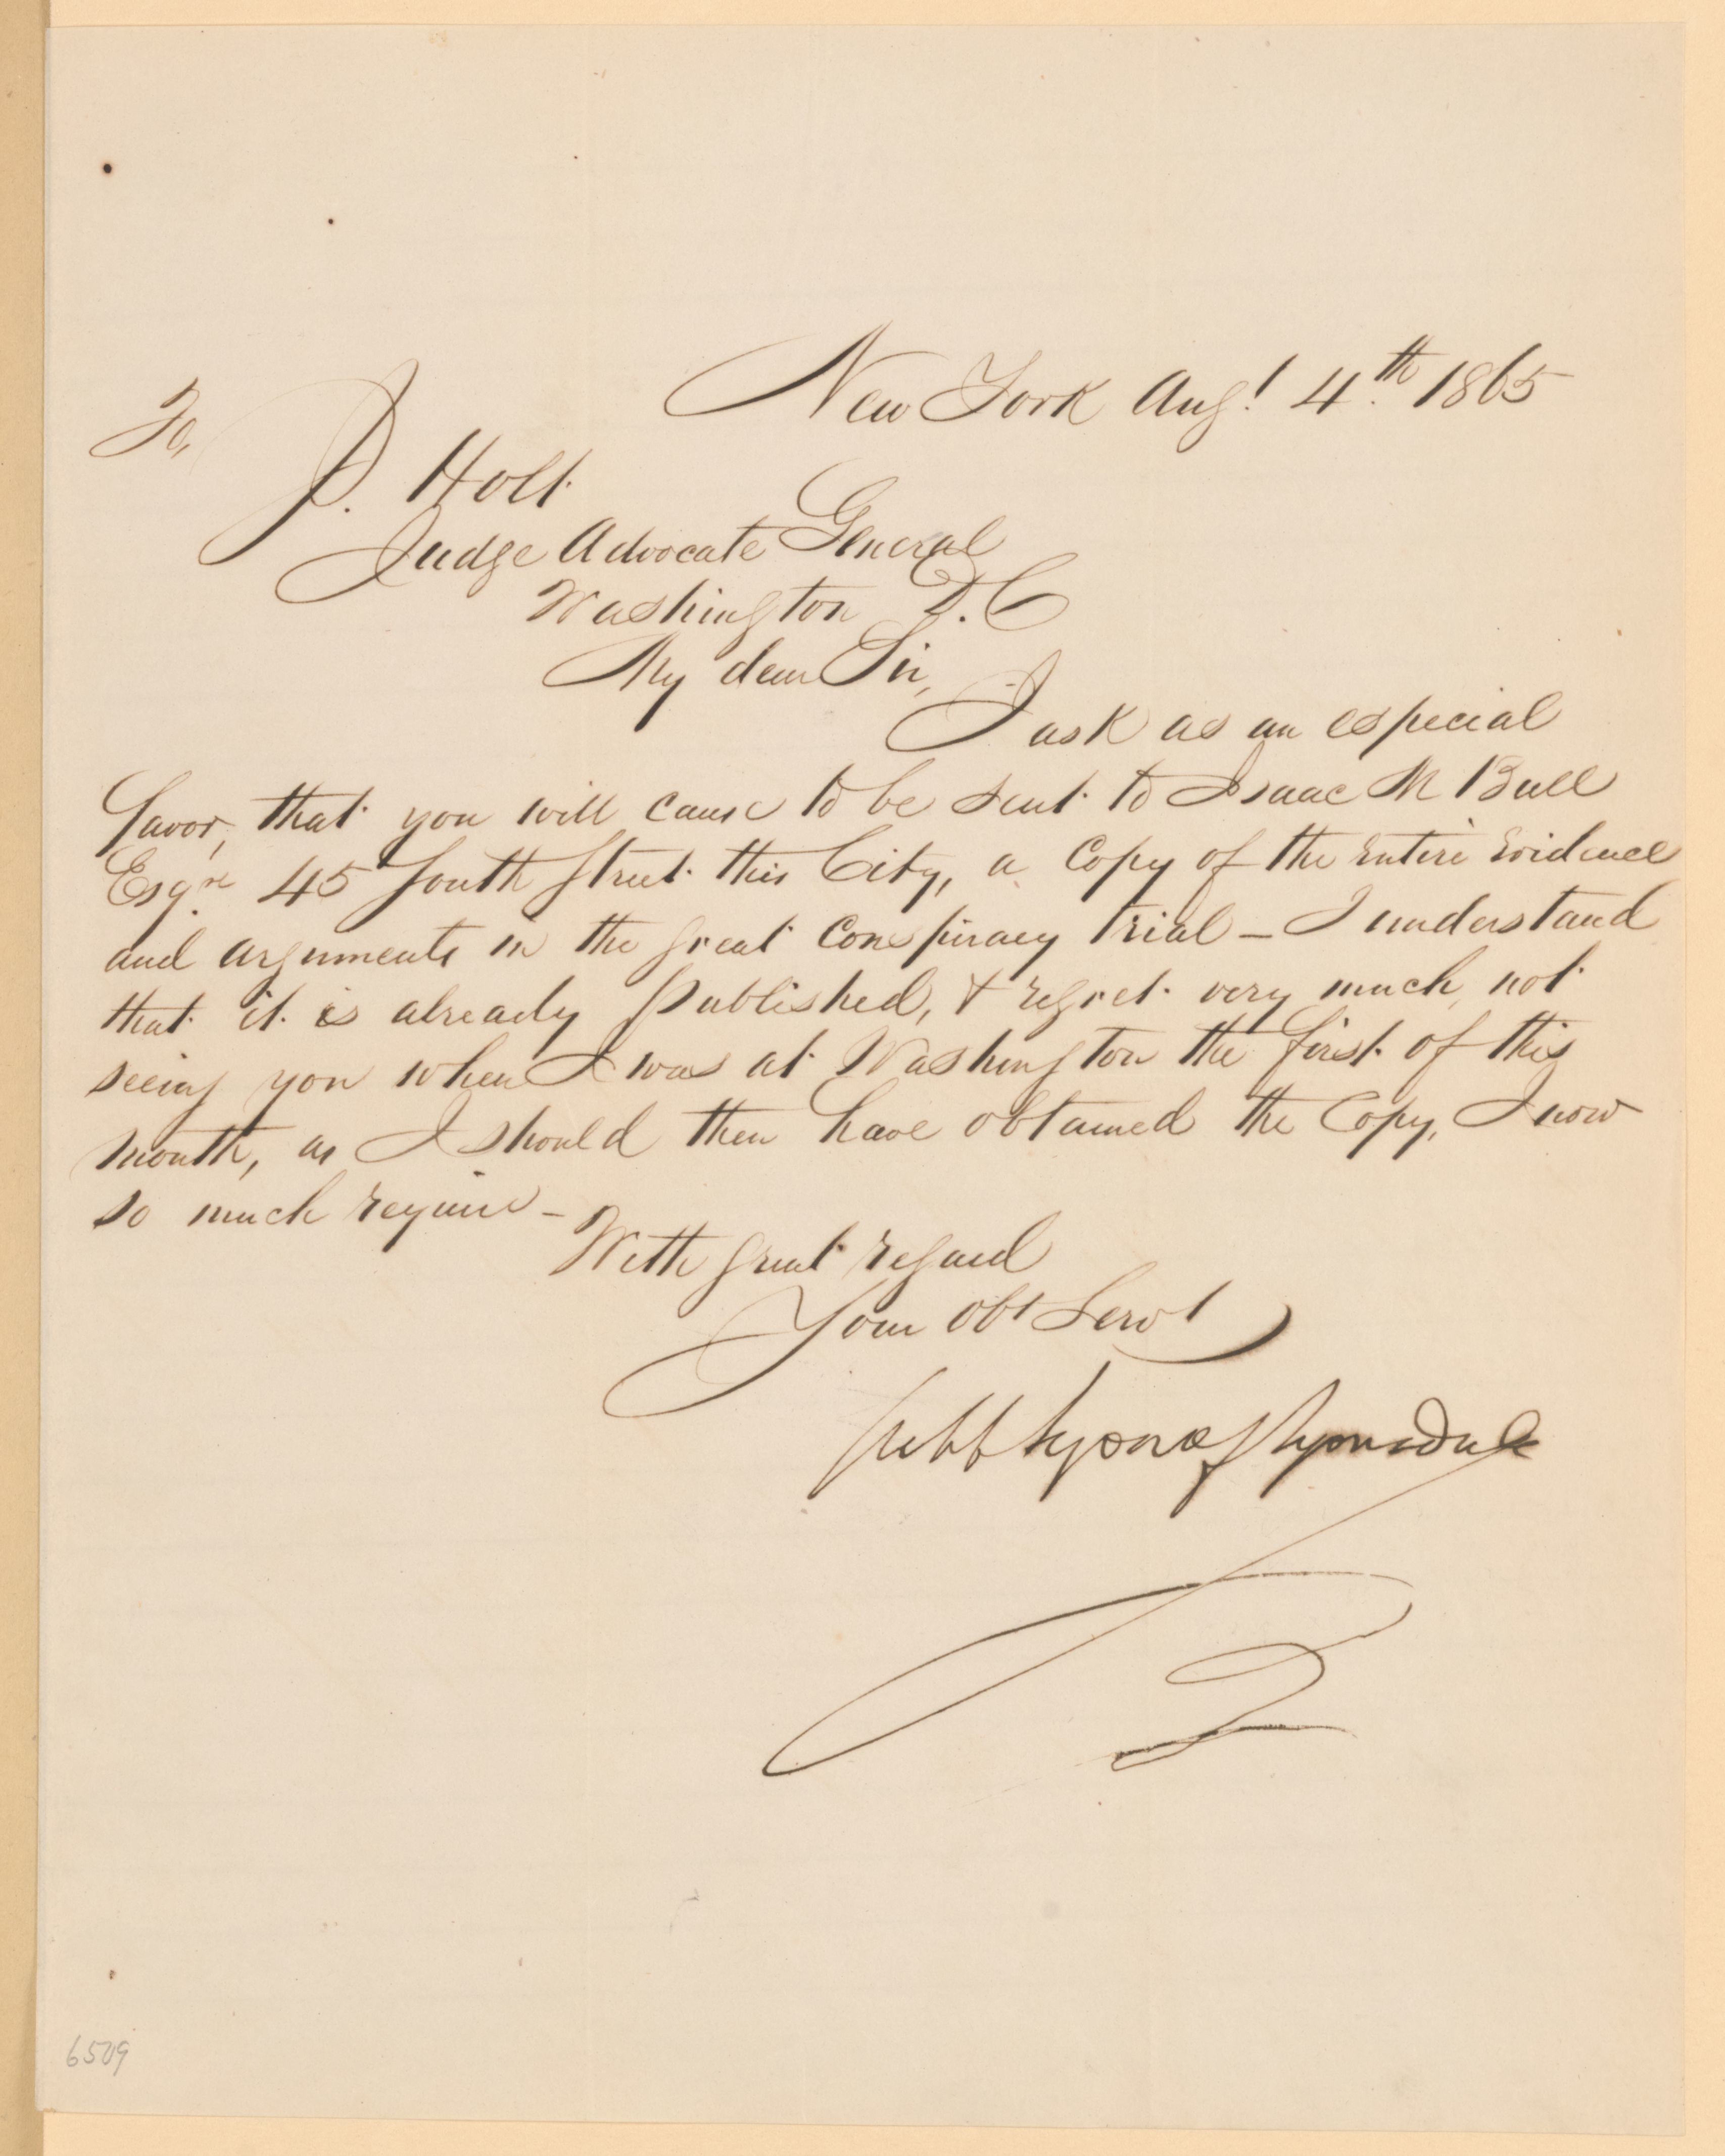 New York Augt 4th 1865
To,
J. Holt
Judge Advocate General
Washington D.C
My dear Sir,
I ask as an especial
favor, that you will cause to be sent to Isaac M Bull
Esqre 45 South Street this City, a Copy of the entire evidence
and arguments in the great Conspiracy trial – I understand
that it is already published, & regret very much not
seeing you when I was at Washington the first of this
month, as I should then have obtained the Copy, I now
so much require –
With great regard
Your obt Servt
Lyons of Lyonsdale
6509